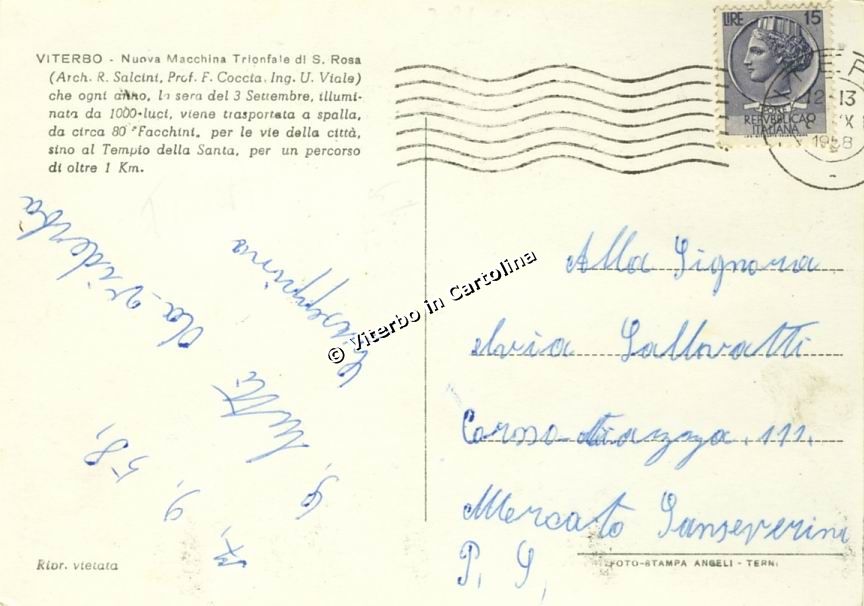 VITERBO - Nuova Macchina Trionfale di S. Rosa
(Arch. R. Salcini, Prof. F. Coccia, Ing. U. Viale)
che ogni anno, la sera del 3 Settembre, illumi-
nata da 1000 luci, viene trasportata a spalla,
da circa 80 "Facchini„ per le vie della città,
sino al Tempio della Santa, per un percorso
di oltre 1 Km.
LIRE 15
REPVBBLICA
ITALIANA
12-13
IX
1958
7, 9, 58,
Da Viterbo
tutti
Giuseppina
© Viterbo in Cartolina
Alla Signora
elvia
Corso 111.
Mercato Sanseverino
P. S,
Ripr. vietata
FOTO-STAMPA ANGELI - TERNI